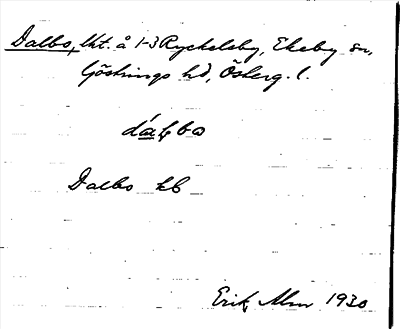 Dalbo, lht. å 1-3 Ryckelsby, Ekeby sn,
Göstrings hd, Österg. l.
Dalbo kb
Erik Alm 1930